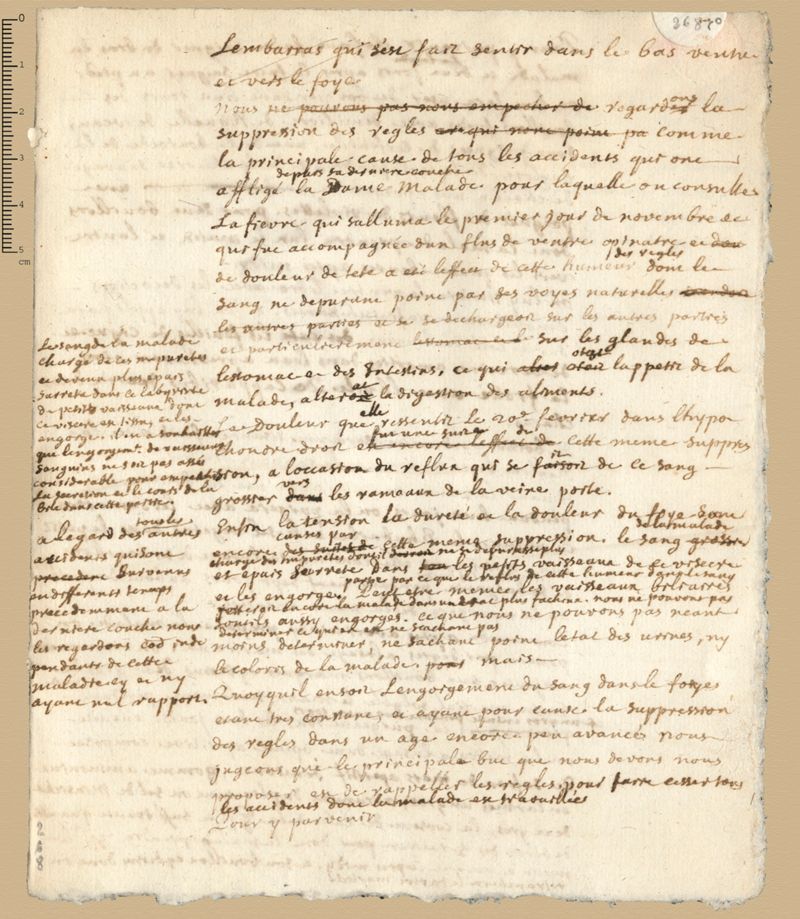 26870
Lembarras qui s'est fait sentir dans le bas ventre
et vers le foye.
Nous ne pouvons pas nous empecher de regardons la
suppression des regles comme
la principale cause de tous les accidents qui ont
depuis sa derniere couche
affligé la Dame Malade pour laquelle on consulte.
La fievre qui salluma le premier jour de novembre et
qui fut accompagnée dun flus de ventre opinatre et
des regles
de douleur de tete a eté leffect de cette humeur dont le
sang ne depurant point par des voyes naturelles
les autres parties et se dechargeoit sur les autres parties
et particulierement lestomac et sur les glandes de
lestomac et des Intestins, ce qui otoit lappetit de la
malade, altera la digestion des aliments.
La Douleur quelle ressentit le 20e fevrier dans lhypo
fut une suite de
chondre droit encore leffect de cette meme suppres
sion, a loccasion du reflux qui se fit de ce sang
vers
grossier dans les rameaux de la veine porte.
Enfin la tension la dureté et la douleur du foye sont
causés par de la malade
encore des suites de cette meme suppression. le sang grossier
chargé des impuretés dont il ne se depuroit plus
et epais sarrete dans les petits vaisseaux de ce viscere
et les engorge. Peut etre memes les vaisseaux biliaires
sont ils aussy engorgés. ce que nous ne pouvons pas neant
determiner ne sachant pas
moins determiner, ne sachant point letat des urines, ny
le coloris de la malade pour mais
Quoyquil en soit Lengorgement du sang dans le foye
etant tres constant, et ayant pour cause la suppression
des regles dans un age encore peu avancé nous
jugeons que le principale but que nous devons nous
proposer est de rappeller les regles, pour faire cesser tous
les accidents dont la malade est travaillée
Pour y parvenir
Le sang de la malade
chargé de ces impuretés
et devenu plus epais
sarrete dans le labyrinte
de petits vaisseaux dont
ce viscere est tissu, et les
engorge. il en a souhaitter
que lengorgemt. de vaisseaux
sanguins ne soit pas assés
considerable pour empecher
la secretion et le cours de la
bile dans cette partie.
tous les
a legard des autres
accidents qui sont
precedent survenus
en differents temps
precedemment a la
derniere couche nous
les regardons inde
pendants de cette
maladie cy et ny
ayant nul rapport.
268